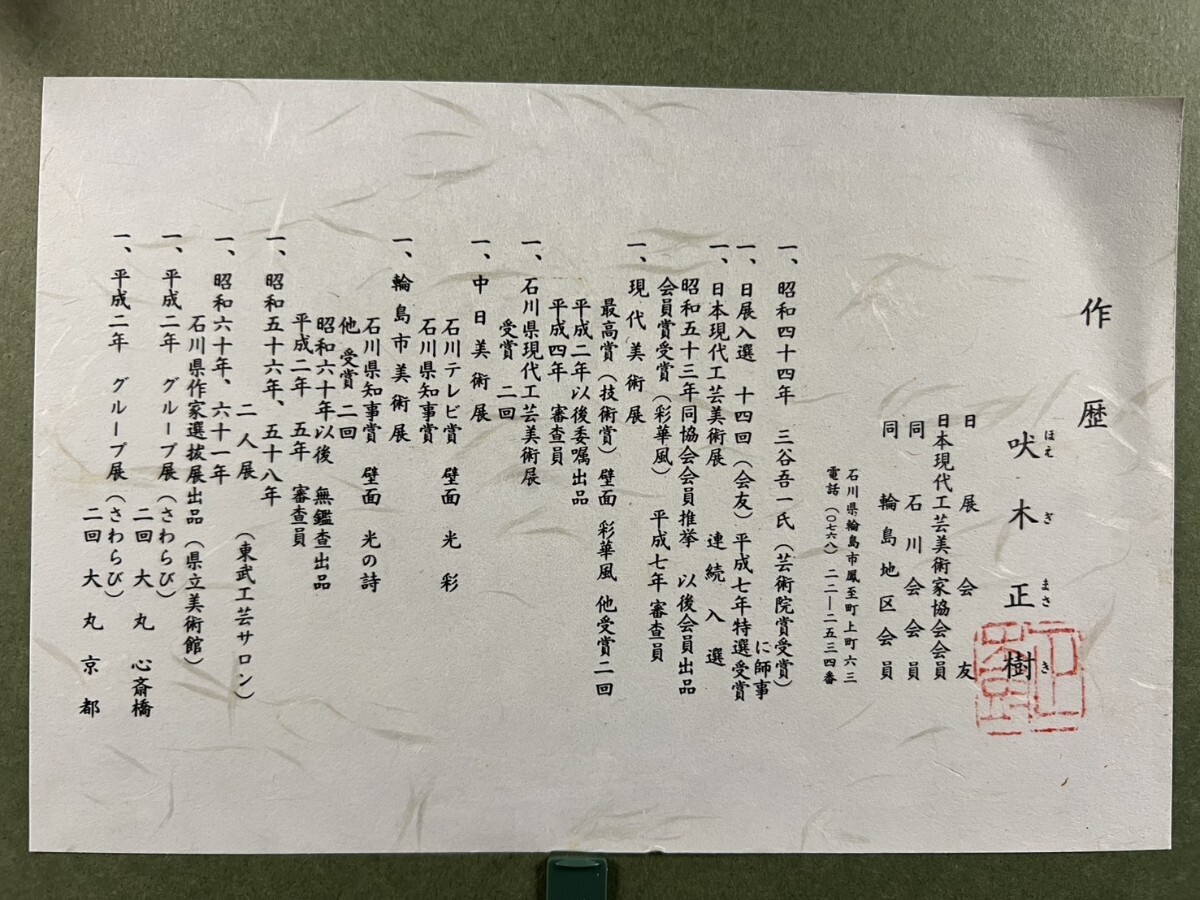 作歴
吠木正樹
ほえぎまさき
日展会友
日本現代工芸美術家協会会員
同 石川会会員
同 輪島地区会員
石川県輪島市鳳至町上町六三
電話(〇七六八)二二―二五三四番
一、昭和四十四年 三谷吾一氏(芸術院賞受賞)
に師事
一、日展入選 十四回(会友)平成七年特選受賞
一、日本現代工芸美術展 連続入選
昭和五十三年同協会会員推挙 以後会員出品
会員賞受賞(彩華風) 平成七年審査員
一、現代美術展
最高賞(技術賞)壁面 彩華風 他受賞二回
平成二年以後委嘱出品
平成四年 審査員
一、石川県現代工芸美術展
受賞 二回
一、中日美術展
石川テレビ賞 壁面 光彩
石川県知事賞
一、輪島市美術展
石川県知事賞 壁面 光の詩
他 受賞 二回
昭和六十年以後 無鑑査出品
平成二年 五年 審査員
一、昭和五十六年、五十八年
二人展 (東武工芸サロン)
一、昭和六十年、六十一年
石川県作家選抜展出品(県立美術館)
一、平成二年 グループ展(さわらび)
二回 大丸 心斎橋
一、平成二年 グループ展(さわらび)
二回 大丸 京都